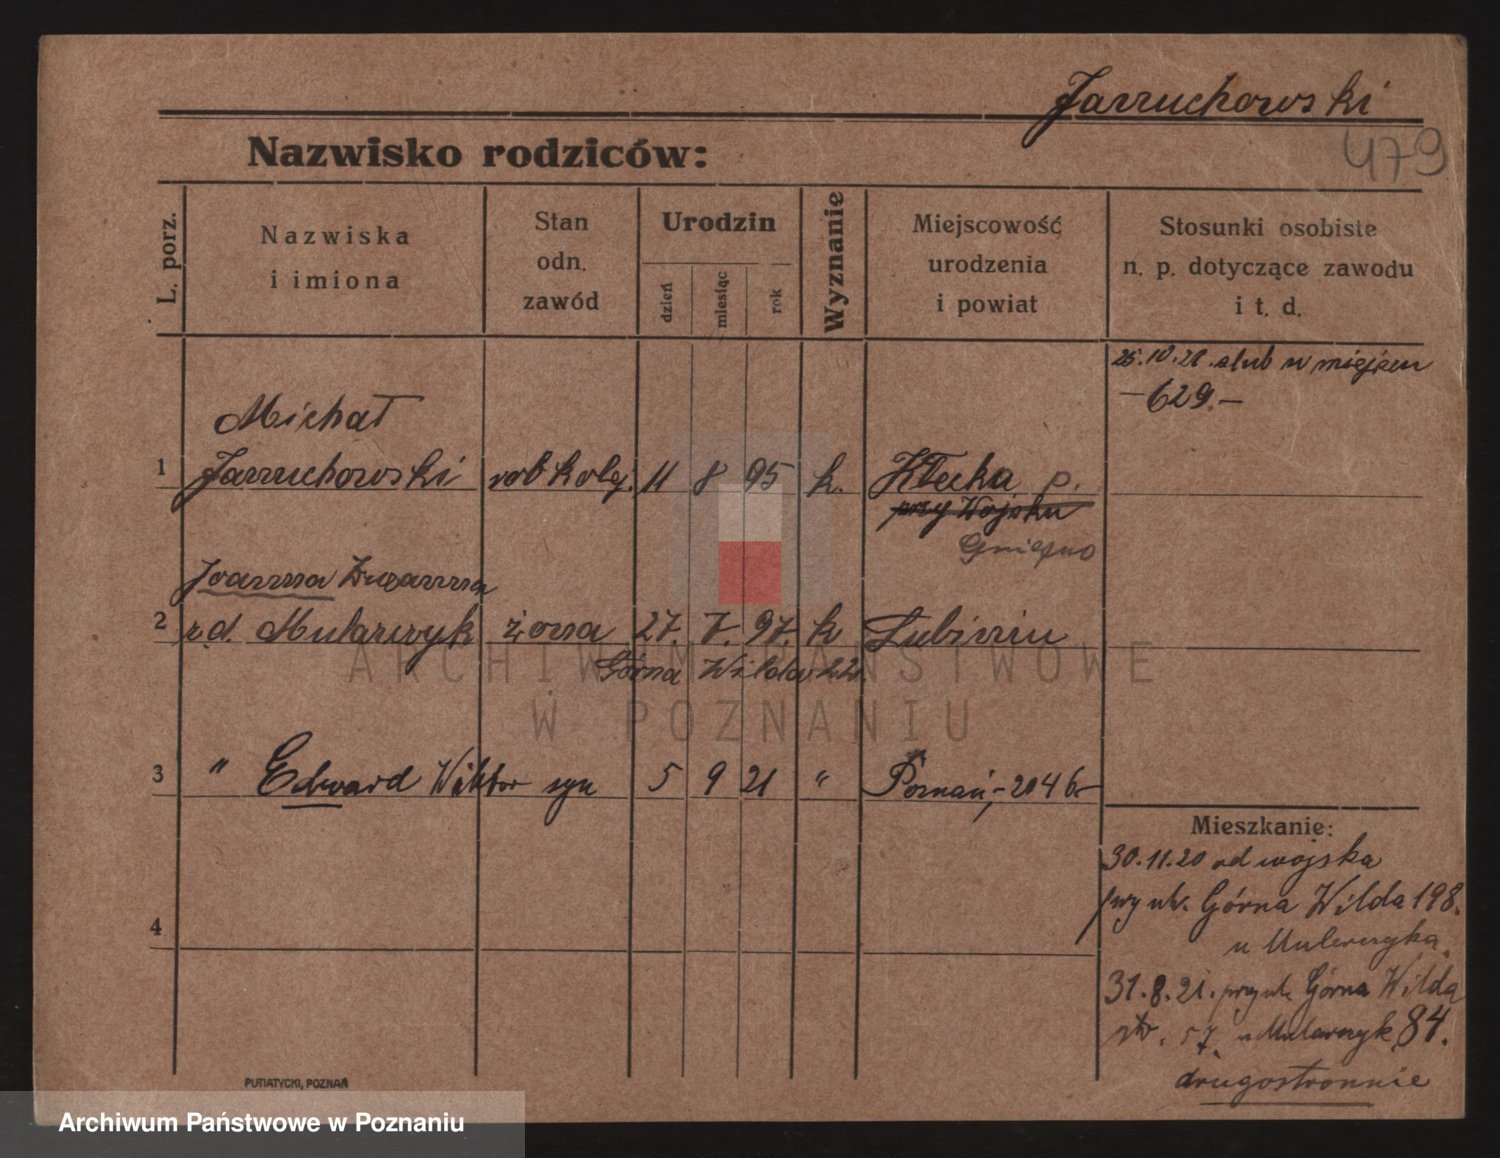 Jarruchowski
479
Nazwisko rodziców:
L. porz.
Nazwiska
i imiona
Stan
odn.
zawód
Urodzin
dzień
miesiąc
rok
Wyznanie
Miejscowość
urodzenia
i powiat
Stosunki osobiste
n. p. dotyczące zawodu
i t. d.
25.10.21. slub w miejscu
— 629. —
Michał
1 Jarruchowski rob kolej. 11 8 95 k. Kłecka p.
przy Wojsku
Gniezno
Joanna Zuzanna
2 r.d. Mularczyk żona 27. 7. 97. k Lubiniu
Górna Wilda 22
3 " Edward Wiktor syn 5 9 21 " Poznań, - 2046 -
4
Mieszkanie:
30.11.20 od wojska
przy ul. Górna Wilda 198.
u Mularczyka.
31.8.21. przy ul. Górna Wilda
str. 57. u Mularczyk 84.
drugostronnie
PUTIATYCKI, POZNAŃ
ARCHIWUM PAŃSTWOWE
W POZNANIU
Archiwum Państwowe w Poznaniu